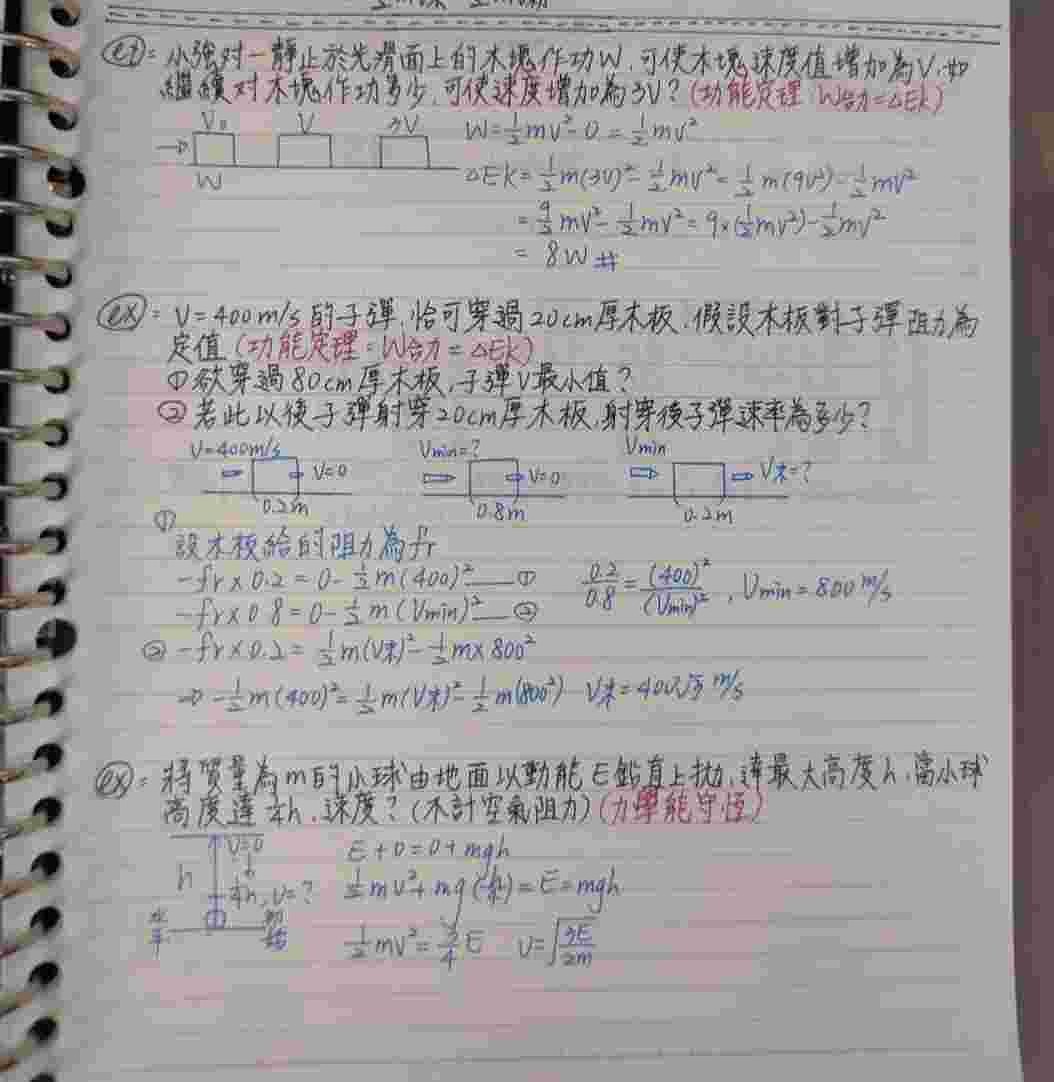 ex: 小強对一靜止於光滑面上的木塊作功W,可使木塊速度值增加為V.如
繼續对木塊作功多少,可使速度增加為3V?(功能定理:W合力=ΔEk)
V₀ V 3V W=½mv²-0=½mv²
W
ΔEk=½m(3V)²-½mv²=½m(9V²)-½mv²
=9/2mv²-½mv²=9×(½mv²)-½mv²
=8W #
ex: V=400m/s的子彈,恰可穿過20cm厚木板.假設木板對子彈阻力為
定值(功能定理:W合力=ΔEk)
①欲穿過80cm厚木板,子彈V最小值?
②若此以後子彈射穿20cm厚木板,射穿後子彈速率為多少?
V=400m/s V=0 Vmin=? V=0 Vmin V末=?
0.2m 0.8m 0.2m
①
設木板給的阻力為fr
-fr×0.2=0-½m(400)²—① 0.2/0.8=(400)²/(Vmin)², Vmin=800 m/s
-fr×0.8=0-½m(Vmin)²—②
② -fr×0.2=½m(V末)²-½m×800²
⇒ -½m(400)²=½m(V末)²-½m(800²) V末=400√3 m/s
ex: 將質量為m的小球由地面以動能E鉛直上拋,達最大高度h,當小球
高度達¼h,速度?(不計空氣阻力)(力學能守恆)
V=0 E+0=0+mgh
h ¼h,V=? ½mv²+mg(¼h)=E=mgh
水平 初始
½mv²=¾E V=√(3E/2m)